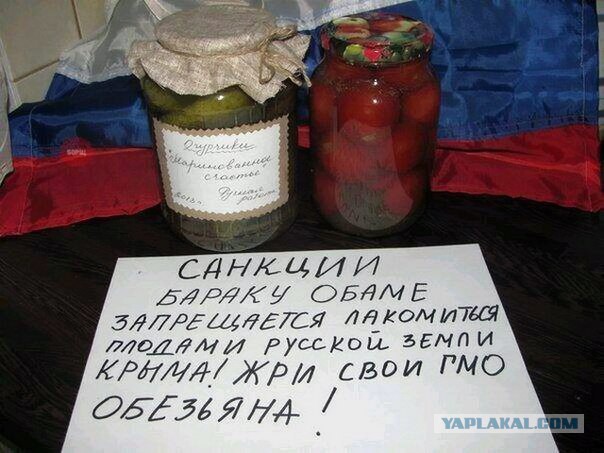 Огурчики
"Маринованное
счастье"
2013 г. Ручная
работа
САНКЦИИ
БАРАКУ ОБАМЕ
ЗАПРЕЩАЕТСЯ ЛАКОМИТЬСЯ
ПЛОДАМИ РУССКОЙ ЗЕМЛИ
КРЫМА! ЖРИ СВОИ ГМО
ОБЕЗЬЯНА!
YAPLAKAL.COM